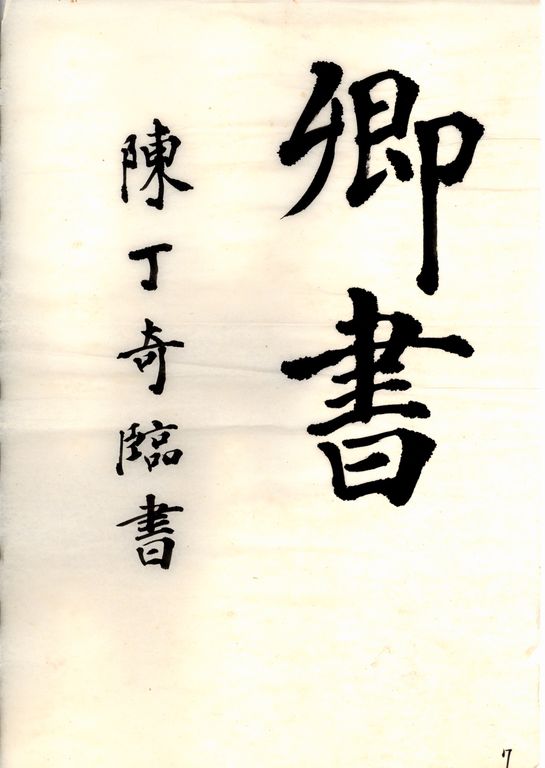 卿書
陳丁奇臨書
7